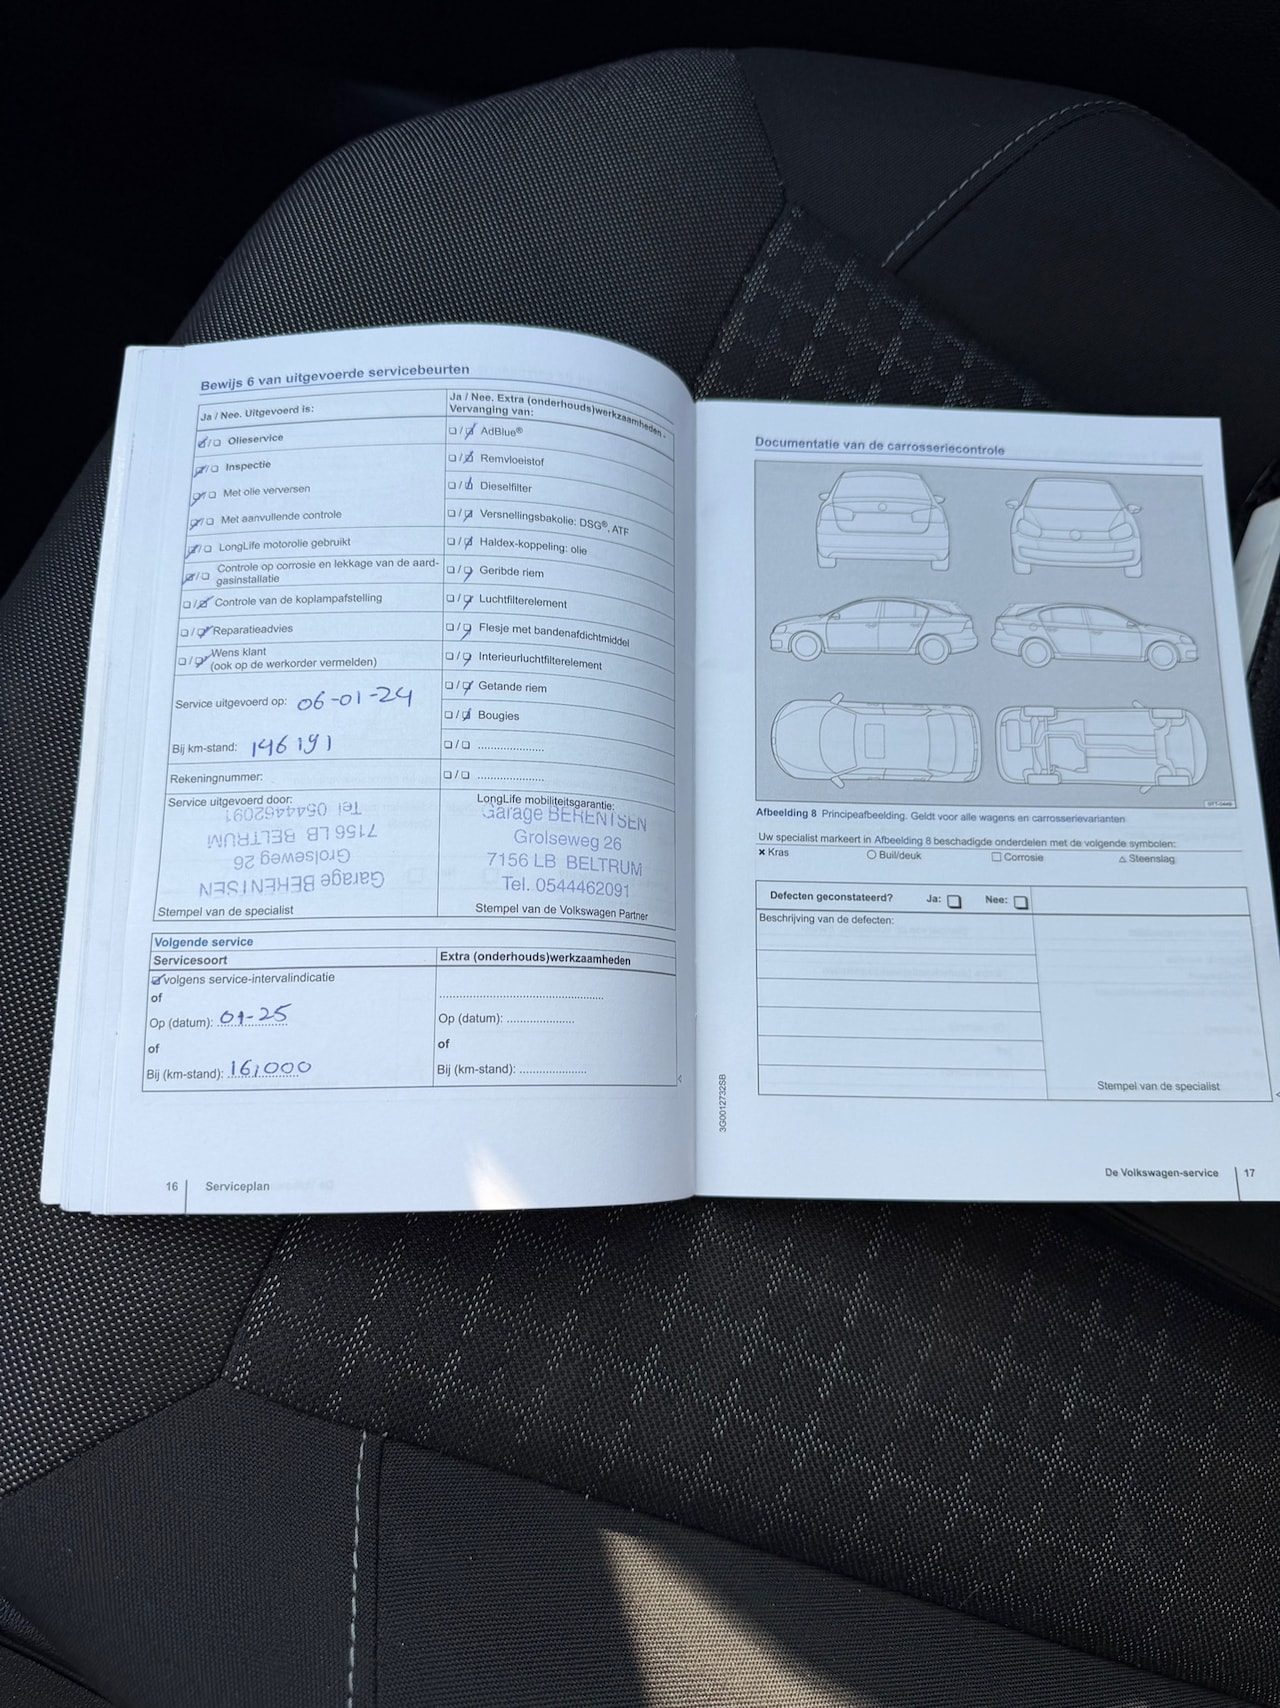 Bewijs 6 van uitgevoerde servicebeurten
Ja / Nee. Uitgevoerd is:
Olieservice
Inspectie
Met olie verversen
Met aanvullende controle
LongLife motorolie gebruikt
Controle op corrosie en lekkage van de aard-
gasinstallatie
Controle van de koplampafstelling
Reparatieadvies
Wens klant
(ook op de werkorder vermelden)
Service uitgevoerd op: 06-01-24
Bij km-stand: 146191
Rekeningnummer:
Service uitgevoerd door:
Garage BERENTSEN
Grolseweg 26
7156 LB BELTRUM
Tel 0544462091
Stempel van de specialist
Ja / Nee. Extra (onderhouds)werkzaamheden.
Vervanging van:
AdBlue®
Remvloeistof
Dieselfilter
Versnellingsbakolie: DSG®, ATF
Haldex-koppeling: olie
Geribde riem
Luchtfilterelement
Flesje met bandenafdichtmiddel
Interieurluchtfilterelement
Getande riem
Bougies
LongLife mobiliteitsgarantie:
Garage BERENTSEN
Grolseweg 26
7156 LB BELTRUM
Tel. 0544462091
Stempel van de Volkswagen Partner
Volgende service
Servicesoort
volgens service-intervalindicatie
of
Op (datum): 01-25
of
Bij (km-stand): 161000
Extra (onderhouds)werkzaamheden
Op (datum):
of
Bij (km-stand):
16 Serviceplan
Documentatie van de carrosseriecontrole
Afbeelding 8 Principeafbeelding. Geldt voor alle wagens en carrosserievarianten
Uw specialist markeert in Afbeelding 8 beschadigde onderdelen met de volgende symbolen:
× Kras ○ Buil/deuk □ Corrosie △ Steenslag
Defecten geconstateerd? Ja: Nee:
Beschrijving van de defecten:
Stempel van de specialist
3G0012732SB
De Volkswagen-service 17